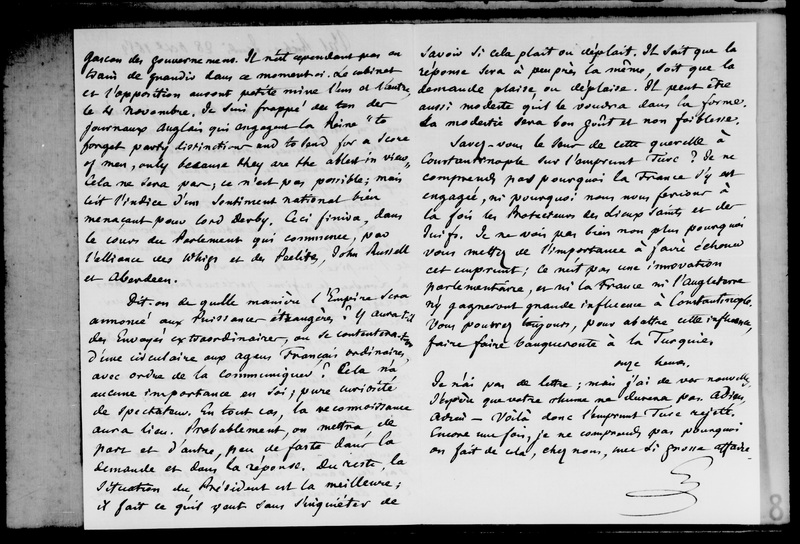 gascon des gouvernemens. Il n'est cependant pas en
train de grandir dans ce moment-ci. Le cabinet
et l'opposition auront petite mine l'un et l'autre,
le 4 novembre. Je suis frappé du ton des
journaux Anglais qui engagent la Reine "to
forget party distinctions and to send for a score
of men, only because they are the ablest in view".
Cela ne sera pas; ce n'est pas possible; mais
c'est l'indice d'un sentiment national bien
menaçant pour Lord Derby. Ceci finira, dans
le cours du Parlement qui commence, par
l'alliance des Whigs et des Peelites, John Russell
et Aberdeen.
Dit-on de quelle manière l'Empire sera
annoncé aux Puissances étrangères? Y aura-t-il
des Envoyés extraordinaires, ou se contentera-t-on
d'une circulaire aux agens Français ordinaires,
avec ordre de la communiquer? Cela n'a
aucune importance en soi; pure curiosité
de spectateur. En tout cas, la reconnoissance
aura lieu. Probablement, on mettra, de
part et d'autre, peu de faste dans la
demande et dans la réponse. Du reste, la
situation du Président est la meilleure;
il fait ce qu'il veut sans s'inquiéter de
savoir si cela plait ou déplait. Il sait que la
réponse sera à peu près la même, soit que la
demande plaise ou déplaise. Il peut être
aussi modeste qu'il le voudra dans la forme.
Sa modestie sera bon goût et non foiblesse.
Savez-vous le sens de cette querelle à
Constantinople sur l'emprunt Turc? Je ne
comprends pas pourquoi la France s'y est
engagée, ni pourquoi nous nous ferions à
la fois les Protecteurs des Lieux Saints et des
Juifs. Je ne vois pas bien non plus pourquoi
vous mettez de l'importance à faire échouer
cet emprunt; ce n'est pas une innovation
parlementaire, et ni la France ni l'Angleterre
n'y gagneront grande influence à Constantinople.
Vous pourrez toujours, pour abattre cette influence,
faire faire banqueroute à la Turquie.
onze heures.
Je n'ai pas de lettre; mais j'ai de vos nouvelles.
J'espère que votre rhume ne durera pas. Adieu,
Adieu — Voilà donc l'emprunt Turc rejetté.
Encore une fois, je ne comprends pas pourquoi
on fait de cela, chez nous, une si grosse affaire.
G
8